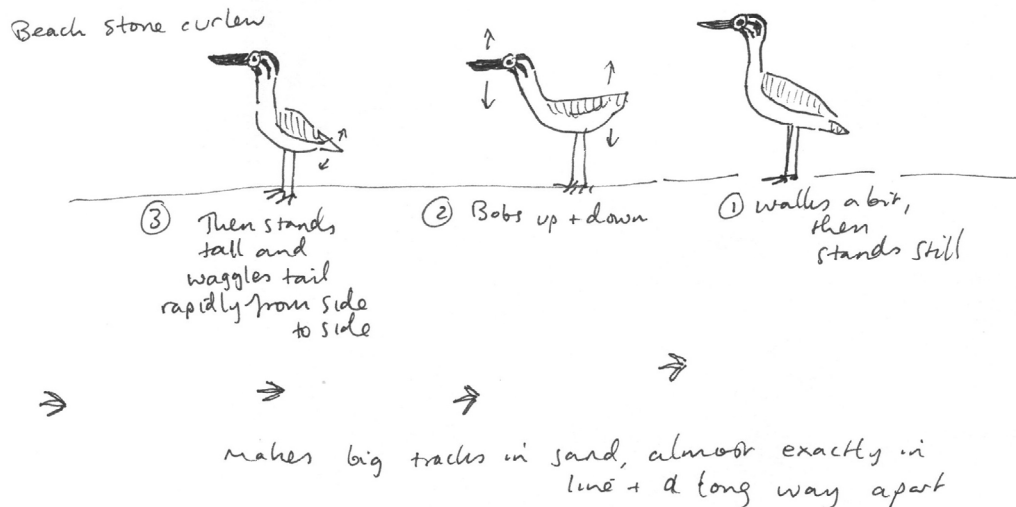 Beach stone curlew
③ Then stands
tall and
waggles tail
rapidly from side
to side
② Bobs up + down
① walks a bit,
then
stands still
makes big tracks in sand, almost exactly in
line + a long way apart